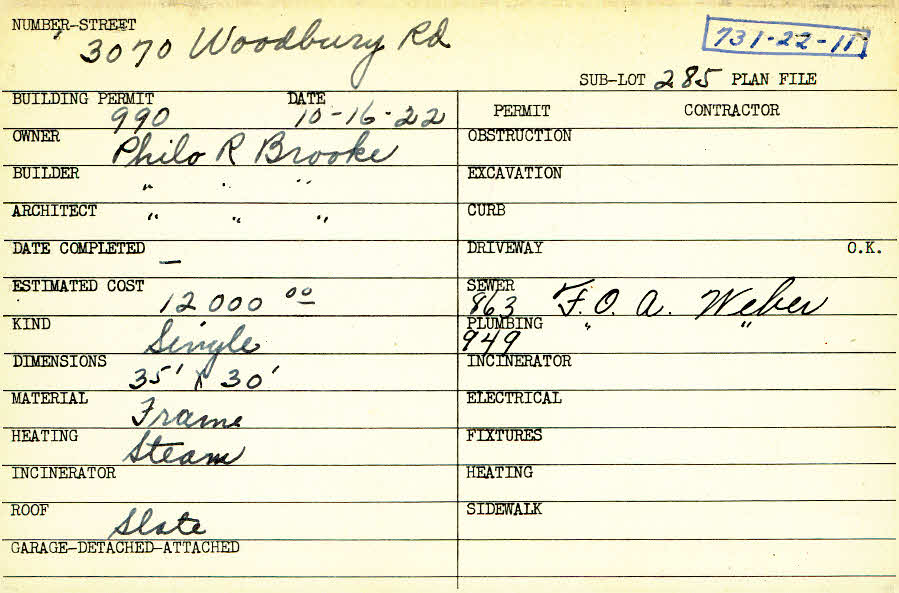 NUMBER-STREET
3070 Woodbury Rd
731-22-11
SUB-LOT 285 PLAN FILE
BUILDING PERMIT DATE
990 10-16-22
PERMIT CONTRACTOR
OWNER
Philo R Brooke
OBSTRUCTION
BUILDER
" " "
EXCAVATION
ARCHITECT
" " "
CURB
DATE COMPLETED
—
DRIVEWAY O.K.
ESTIMATED COST
12000 00
SEWER
863 F. O. A. Weber
KIND
Single
PLUMBING " "
949
DIMENSIONS
35' X 30'
INCINERATOR
MATERIAL
Frame
ELECTRICAL
HEATING
Steam
FIXTURES
INCINERATOR
HEATING
ROOF
Slate
SIDEWALK
GARAGE-DETACHED-ATTACHED